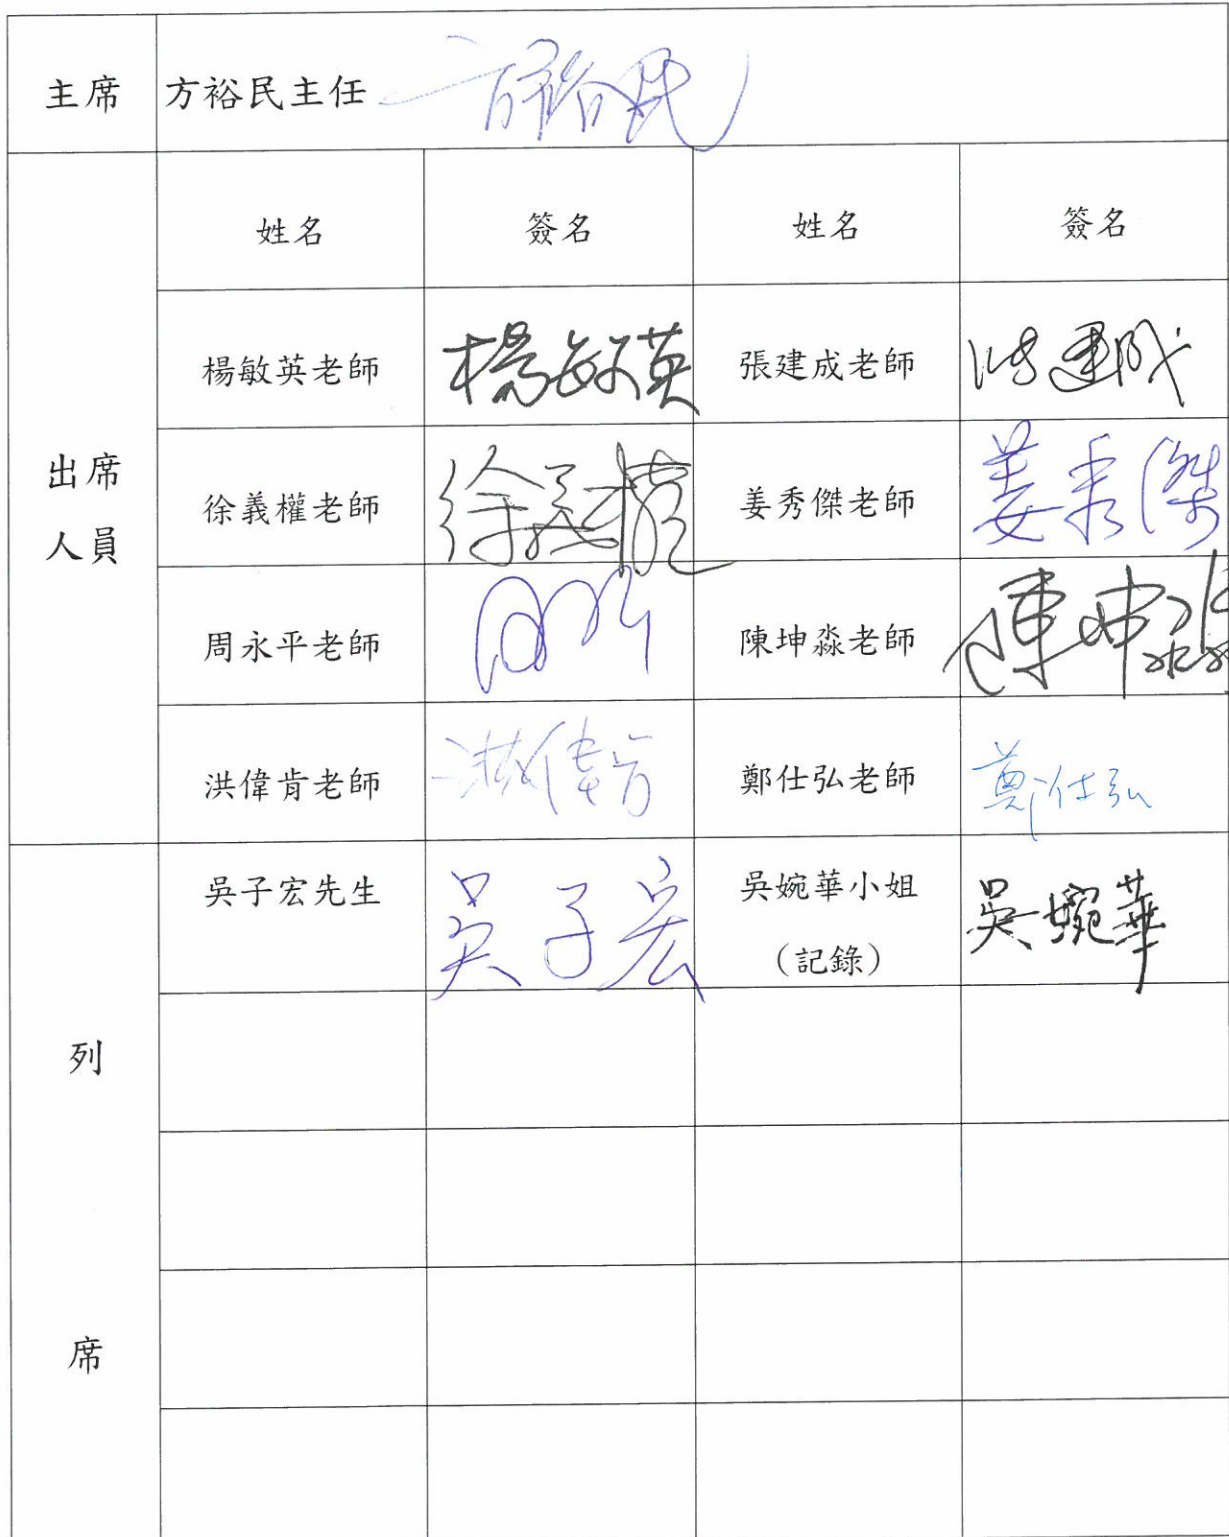 主席 方裕民主任 方裕民
出席人員
姓名 簽名 姓名 簽名
楊敏英老師 楊敏英 張建成老師 張建成
徐義權老師 徐義權 姜秀傑老師 姜秀傑
周永平老師 陳坤淼老師 陳坤淼
洪偉肯老師 洪偉肯 鄭仕弘老師 鄭仕弘
列席
吳子宏先生 吳子宏 吳婉華小姐 吳婉華
(記錄)